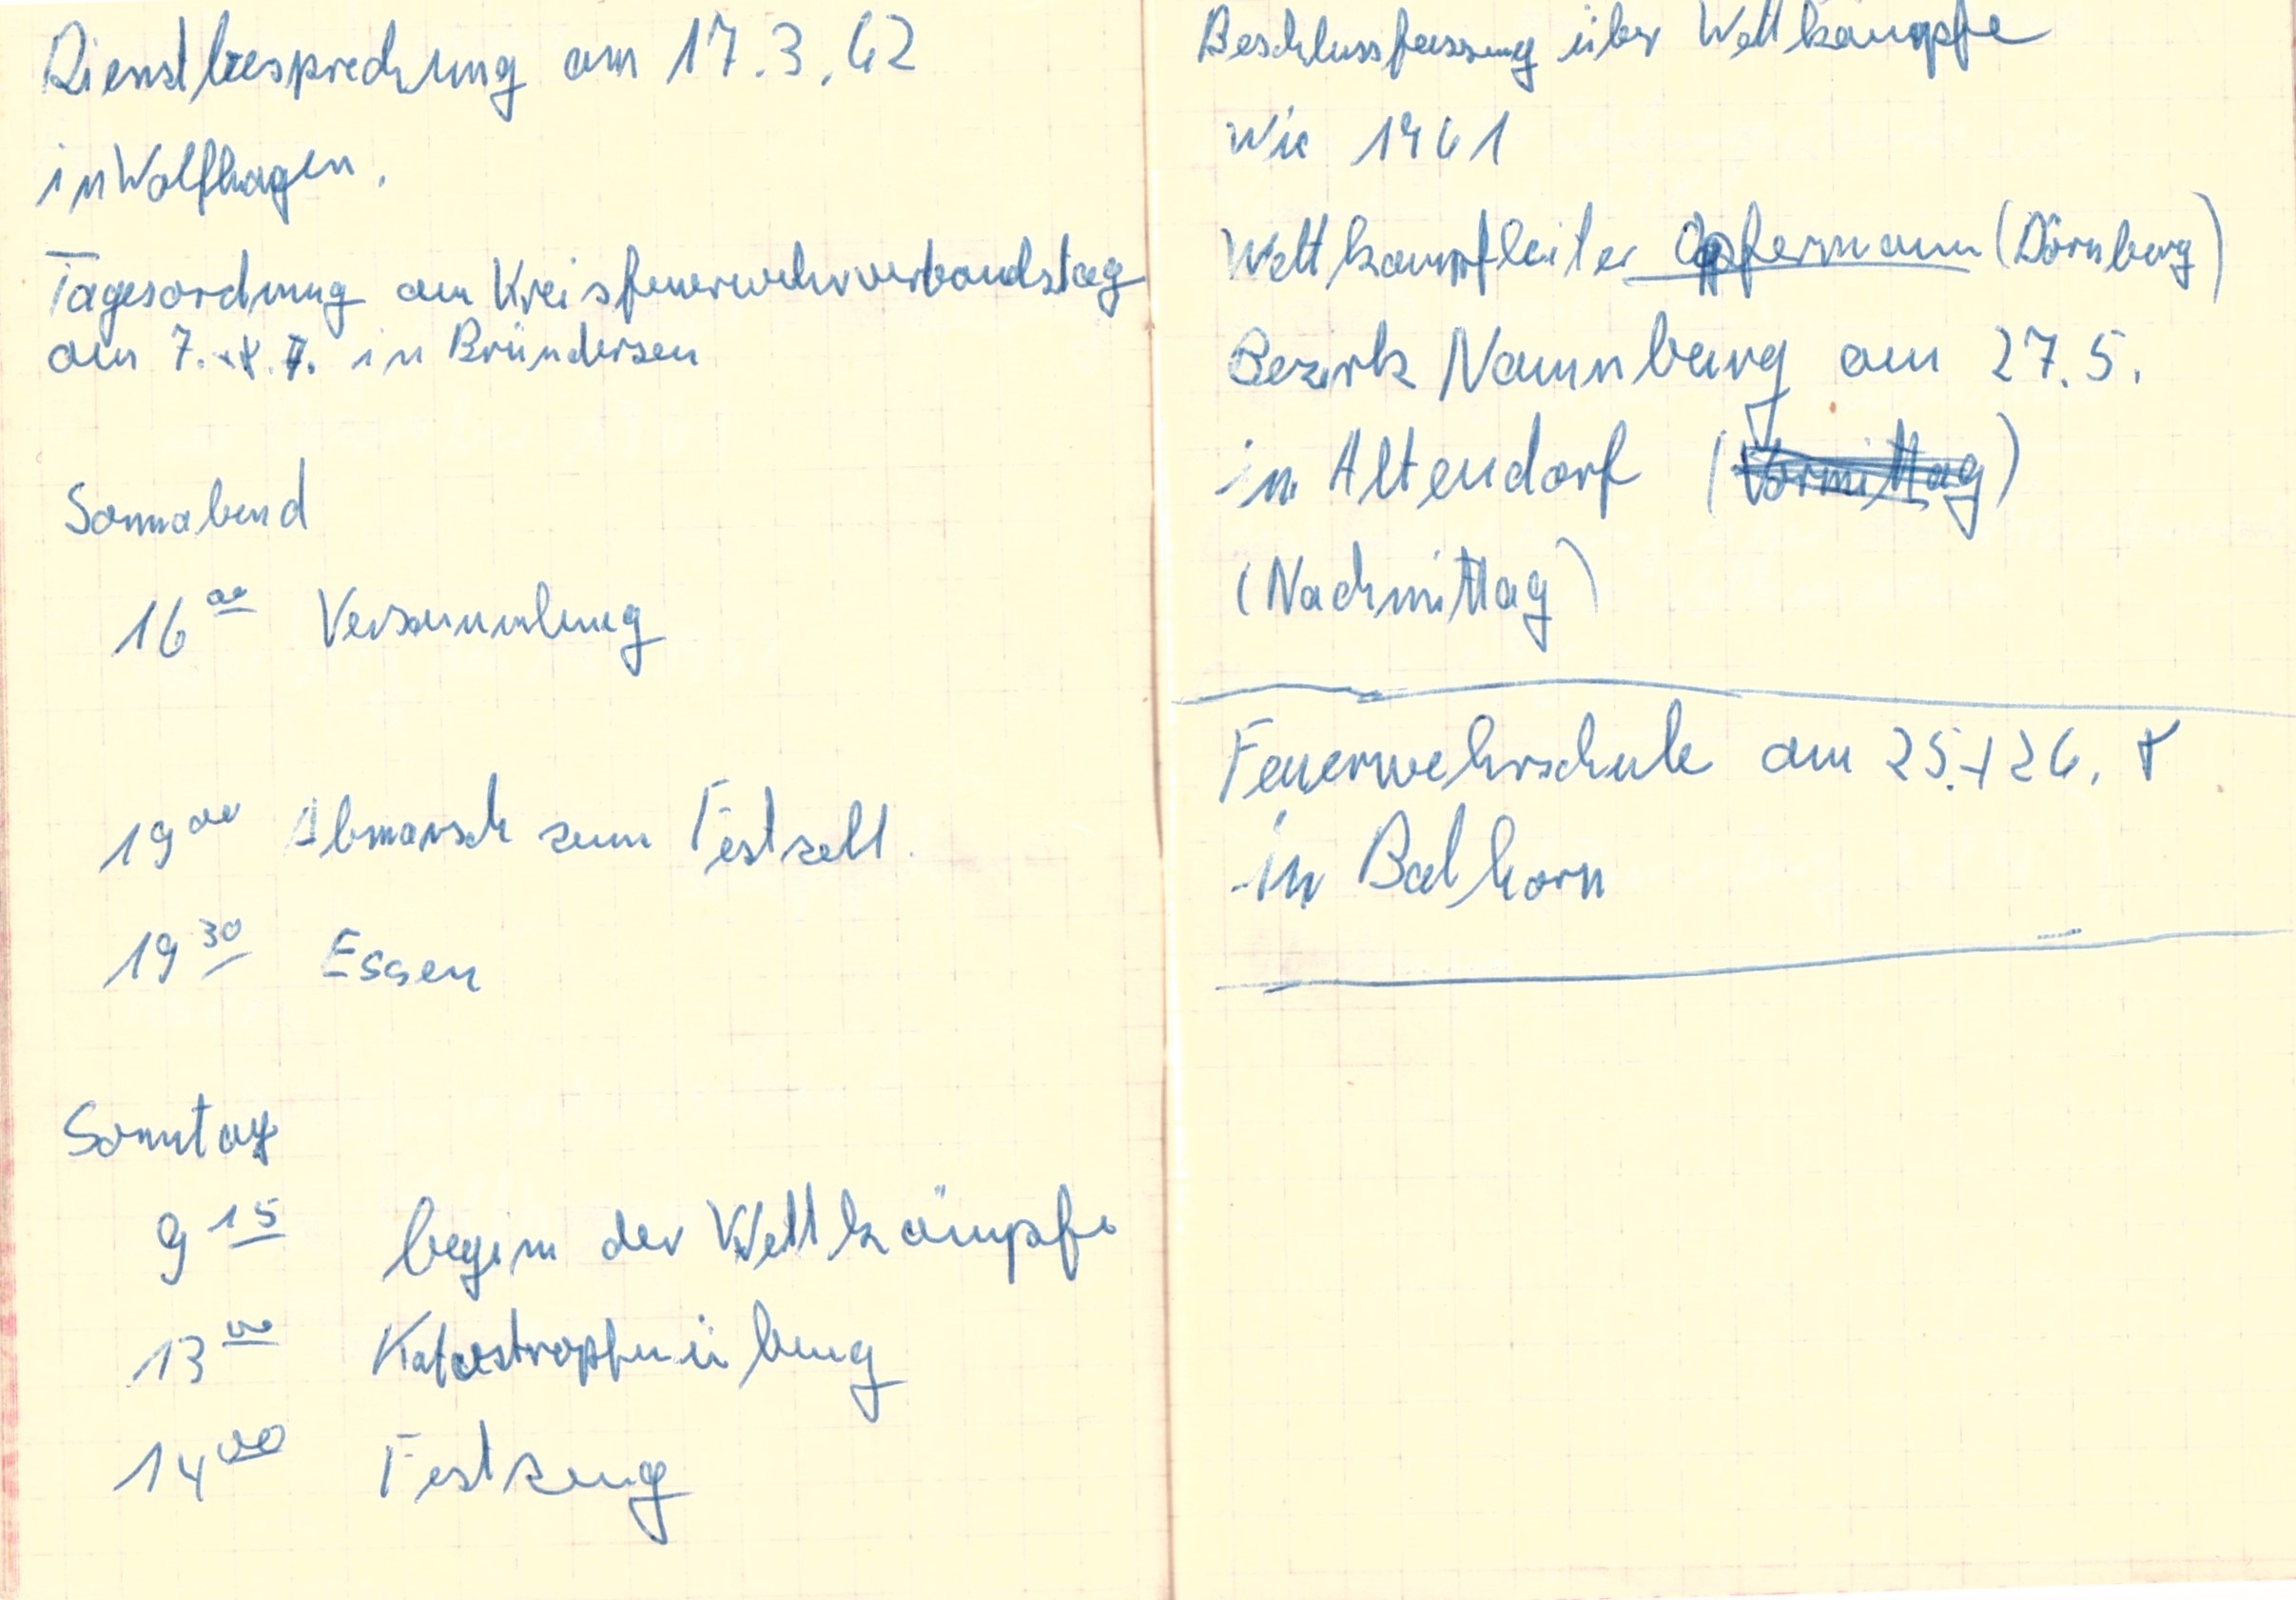 Dienstbesprechung am 17.3.62
in Wolfhagen.
Tagesordnung am Kreisfeuerwehrverbandstag
am 7. + 8. 7. in Bründersen
Sonnabend
16 00 Versammlung
19 00 Abmarsch zum Festzelt.
19 30 Essen
Sonntag
9 15 begin der Wettkämpfe
13 00 Katastropfenübung
14 00 Festzug
Beschlussfassung über Wettkämpfe
Wie 1961
Wettkampfleiter Opfermann (Dörnberg)
Bezirk Naumburg am 27.5.
in Altendorf (Vormittag)
(Nachmittag)
Feuerwehrschule am 25.+26. 8
in Balhorn